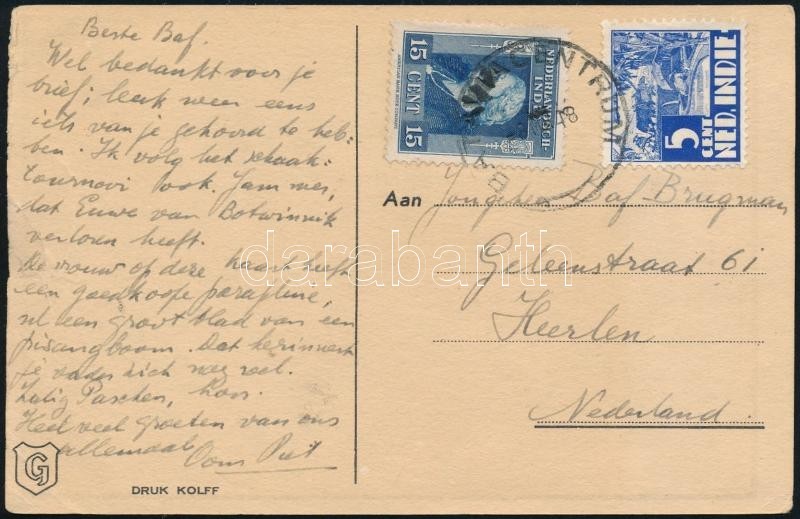 Beste Baf.
Wel bedankt voor je
brief; leuk weer eens
iets van je gehoord te heb-
ben. Ik volg het schaak-
tournooi ook. Jammer,
dat Euwe van Botwinnik
verloren heeft.
De vrouw op deze kaart heeft
een goedkoope parapluie,
nl een groot blad van een
pisangboom. Dat herinnert
je vader zich nog wel.
Zalig Paschen, hoor.
Heel veel groeten van ons
allemaal
Oom Piet
G
DRUK KOLFF
15 CENT 15
NEDERLANDSCH
INDIË
CENTRUM
48
5
CENT
NED. INDIE
Aan Jongeheer Baf Brugman
Geleenstraat 61
Heerlen
Nederland.
darabanth